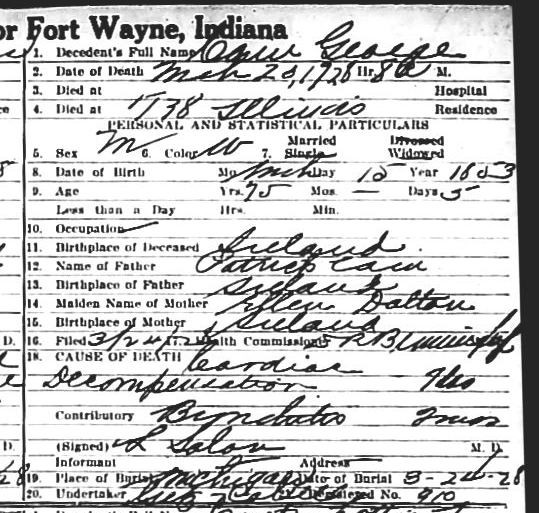 or Fort Wayne, Indiana
1. Decedent's Full Name George
2. Date of Death Mch 20, 1928 Hr. 8 a M.
3. Died at Hospital
4. Died at 1138 Illinois Residence
PERSONAL AND STATISTICAL PARTICULARS
5. Sex M 6. Color W 7. Married Single Divorced Widowed
8. Date of Birth Mo. Mch Day 15 Year 1853
9. Age Yrs. 75 Mos. — Days 5
Less than a Day Hrs. Min.
10. Occupation
11. Birthplace of Deceased Ireland
12. Name of Father Patrick Cain
13. Birthplace of Father Ireland
14. Maiden Name of Mother Ellen Dalton
15. Birthplace of Mother Ireland
16. Filed 3/24/2 Health Commissioner
18. CAUSE OF DEATH Cardiac
Decompensation
Contributory Bronchitis
(Signed) M. D.
Informant Address
19. Place of Burial Michigan Date of Burial 3-24-28
20. Undertaker Registered No. 910